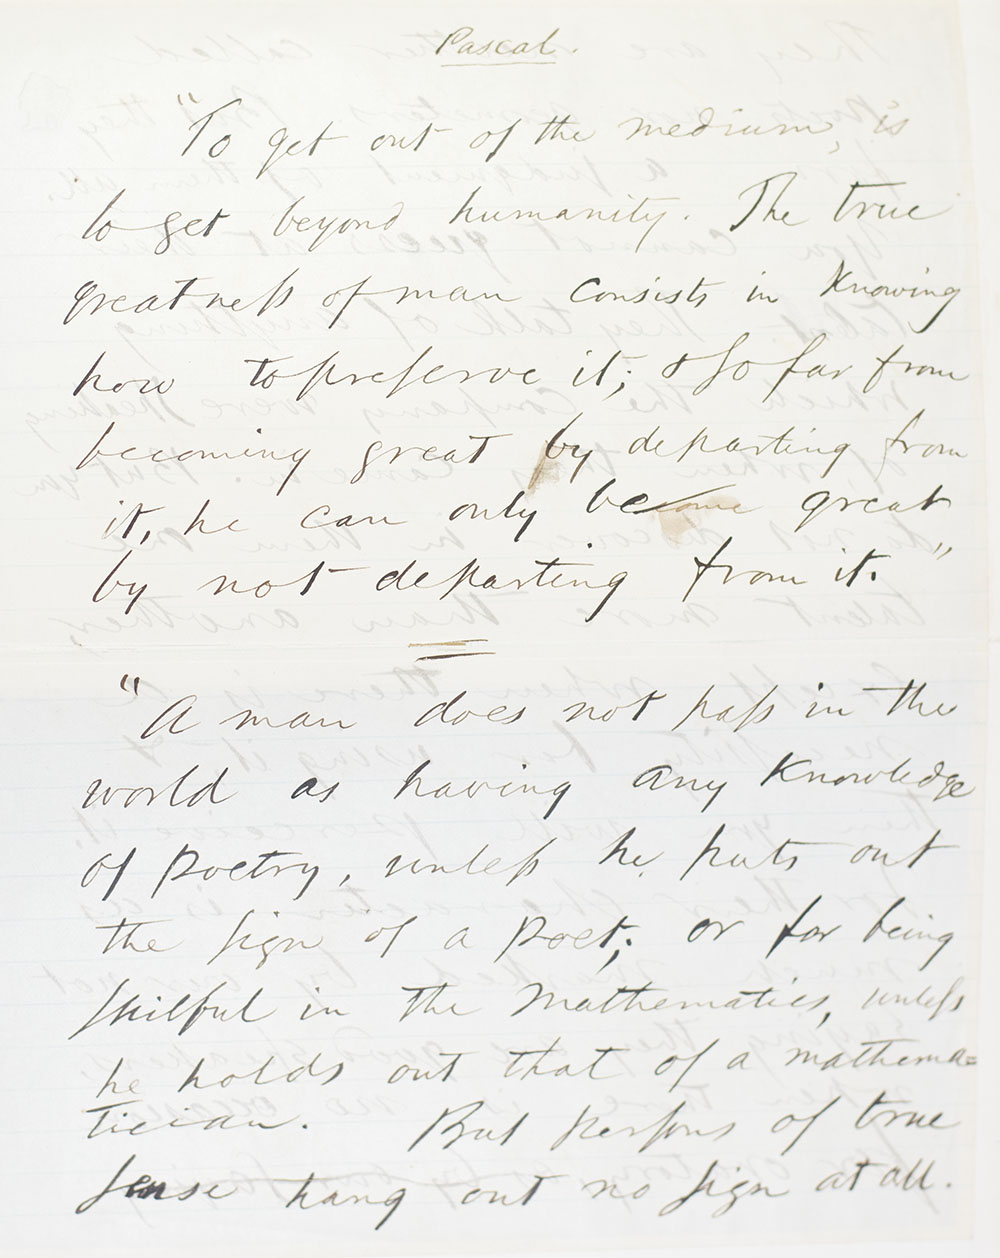 Pascal.
"To get out of the medium, is
to get beyond humanity. The true
greatness of man consists in Knowing
how to preserve it; & so far from
becoming great by departing from
it, he can only become great
by not departing from it."
"A man does not pass in the
world as having any Knowledge
of Poetry, unless he puts out
the sign of a Poet; or for being
skilful in the Mathematics, unless
he holds out that of a mathema=
tician. But persons of true
sense hang out no sign at all.